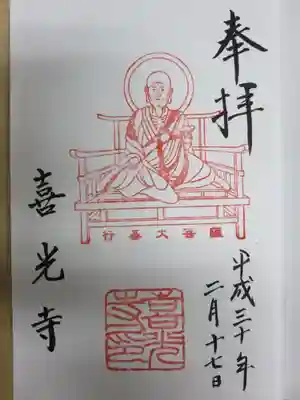 奉拝
平成三十年
二月十七日
行基大菩薩
喜光寺
喜光寺印